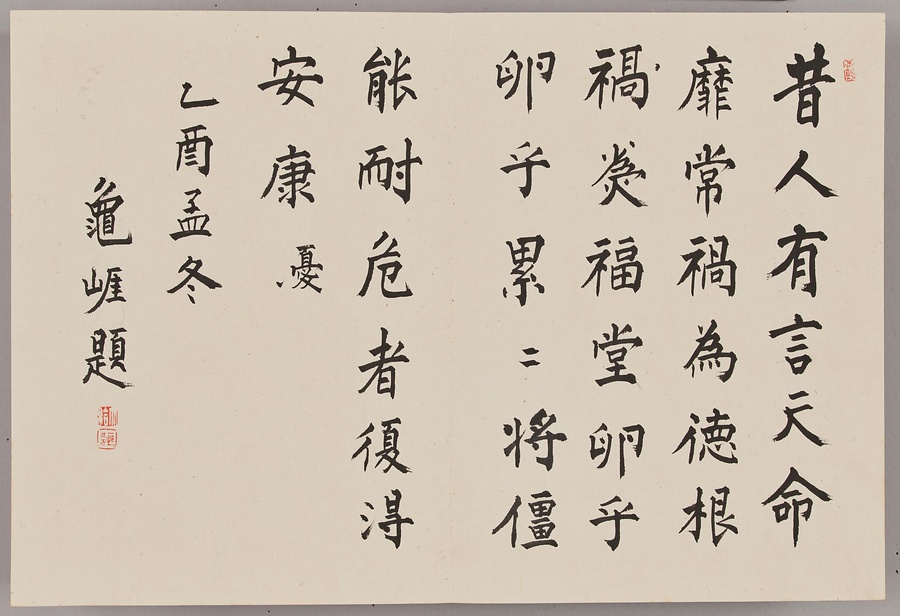 昔人有言天命
靡常禍為德根
禍、爕福堂卵乎
卵乎累〻将僵
能耐危者復得
安康 憂
乙酉孟冬
龜崕題